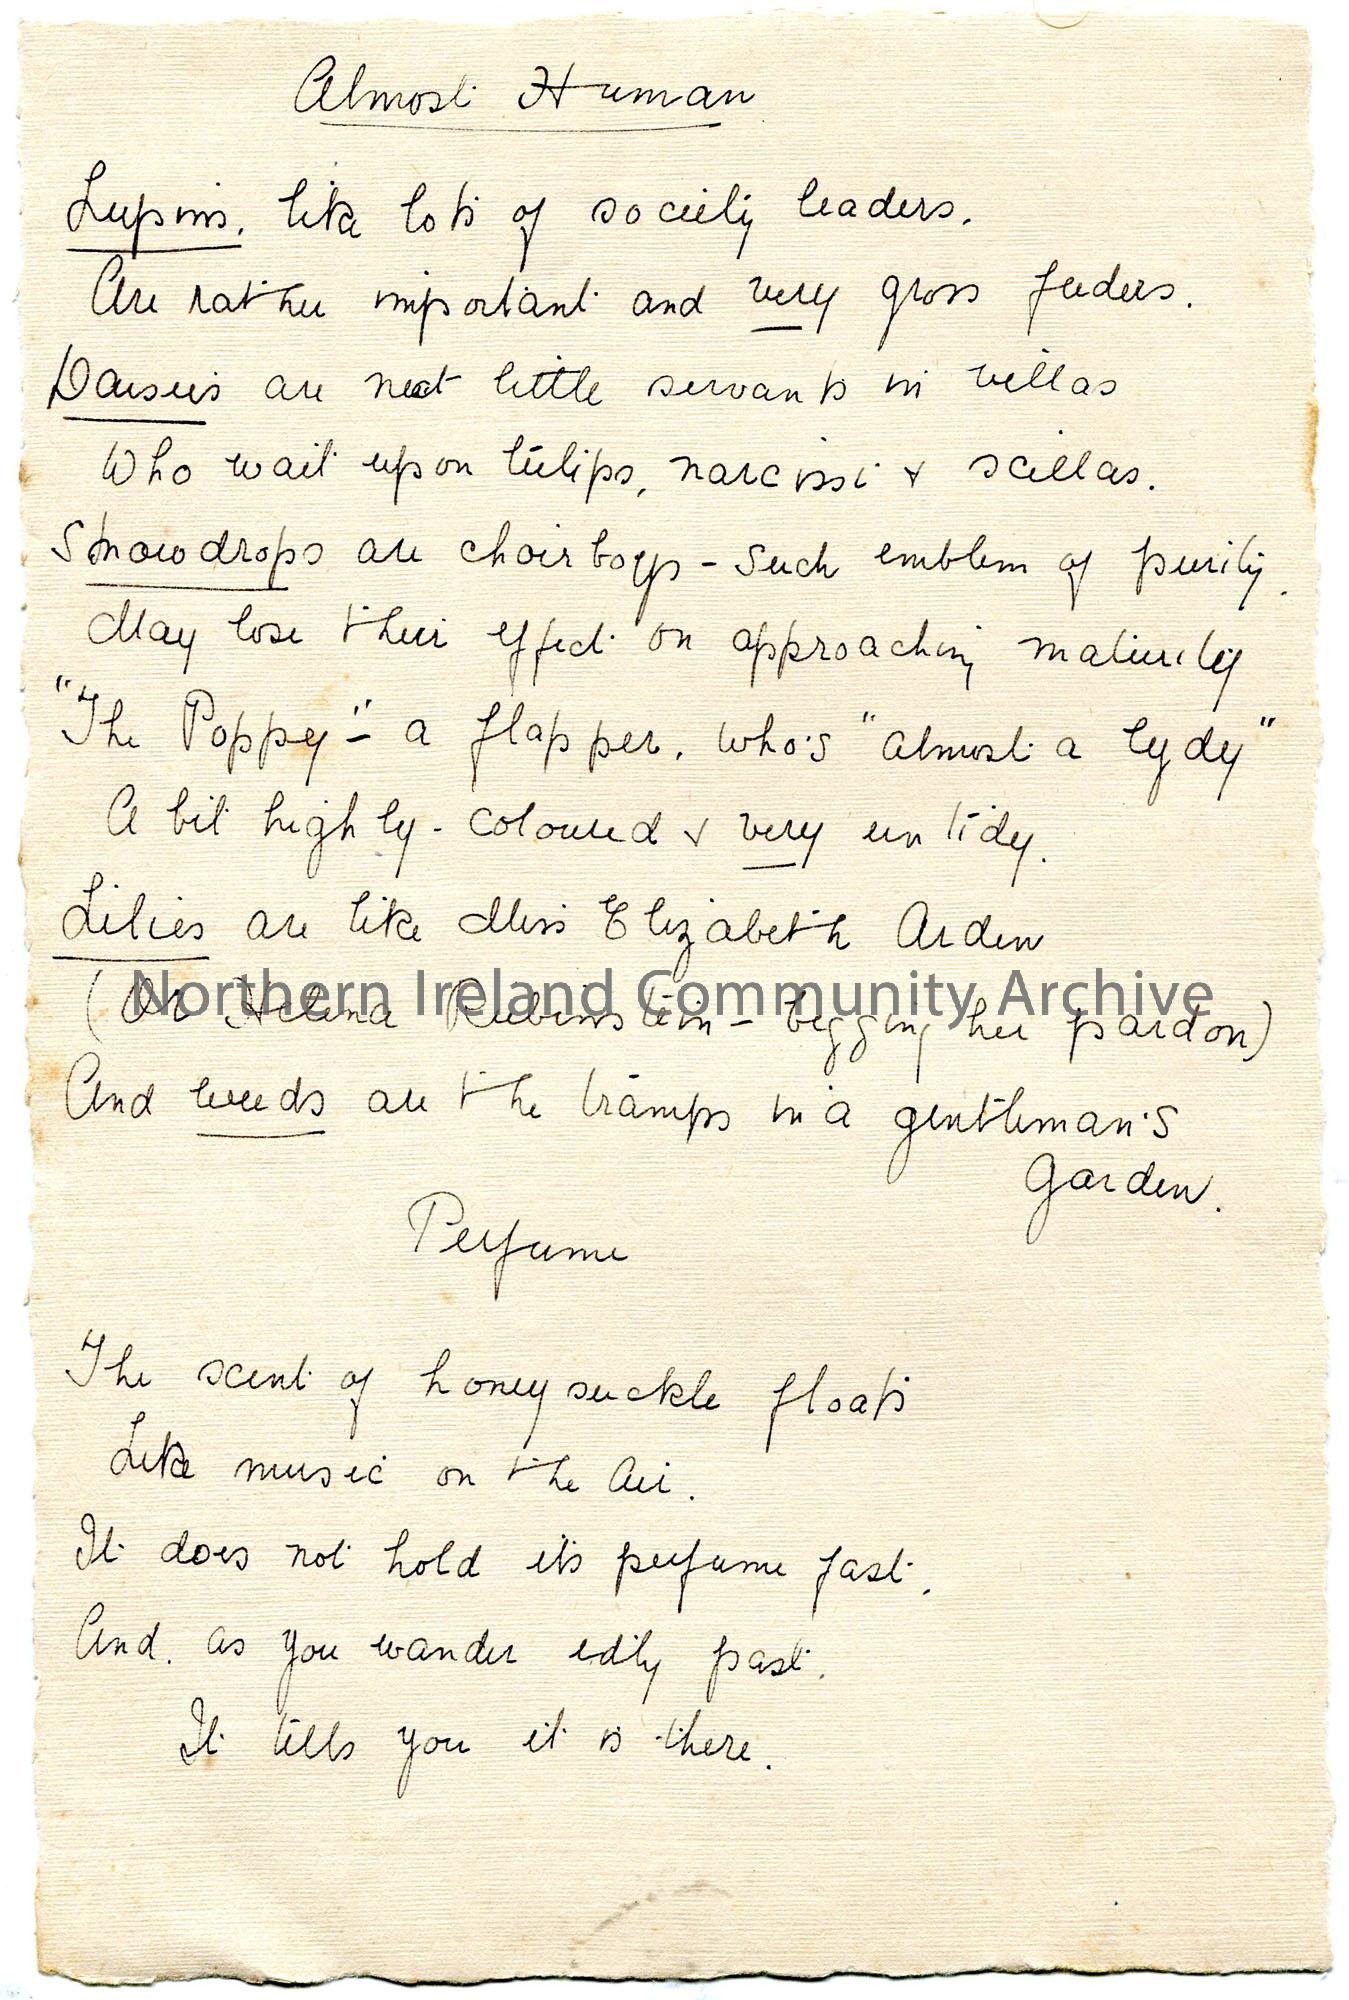 Almost Human
Lupins, like lots of society leaders,
Are rather important and very gross feeders.
Daisies are neat little servants in villas
Who wait upon tulips, narcissi & scillas.
Snowdrops are choirboys - such emblem of purity,
May lose their effect on approaching maturity
"The Poppy" - a flapper, who's "almost a lydy"
A bit highly-coloured & very untidy.
Lilies are like Miss Elizabeth Arden
(Or Helena Rubinstein - begging her pardon)
Northern Ireland Community Archive
And weeds are the tramps in a gentleman's
Garden.
Perfume
The scent of honeysuckle floats
Like music on the Air.
It does not hold its perfume fast,
And, as you wander idly past,
It tells you it is there.